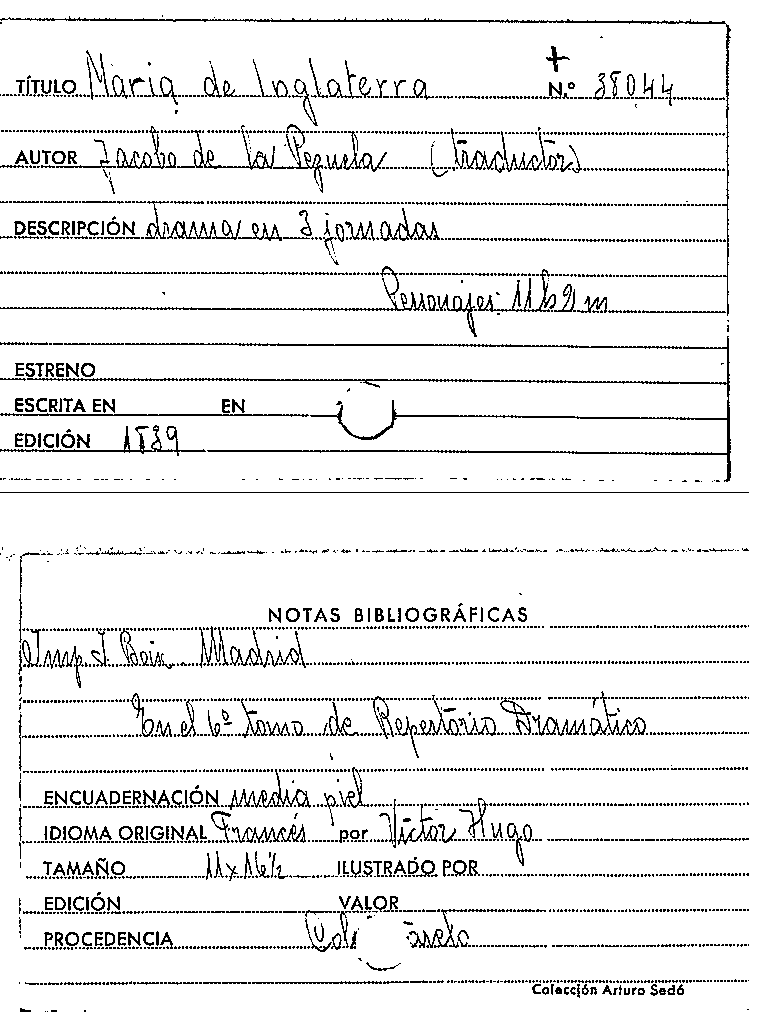 TÍTULO Maria de Inglaterra + N.º 38044
AUTOR Jacobo de la Pezuela (traductor)
DESCRIPCIÓN drama en 3 jornadas
Personajes: 11 h 2 m
ESTRENO
ESCRITA EN EN
EDICIÓN 1839
NOTAS BIBLIOGRÁFICAS
Imp. J. Boix Madrid
En el 6º tomo de Repertorio Dramático
ENCUADERNACIÓN media piel
IDIOMA ORIGINAL Francés por Víctor Hugo
TAMAÑO 11x16½ ILUSTRADO POR
EDICIÓN VALOR
PROCEDENCIA
Colección Arturo Sedó